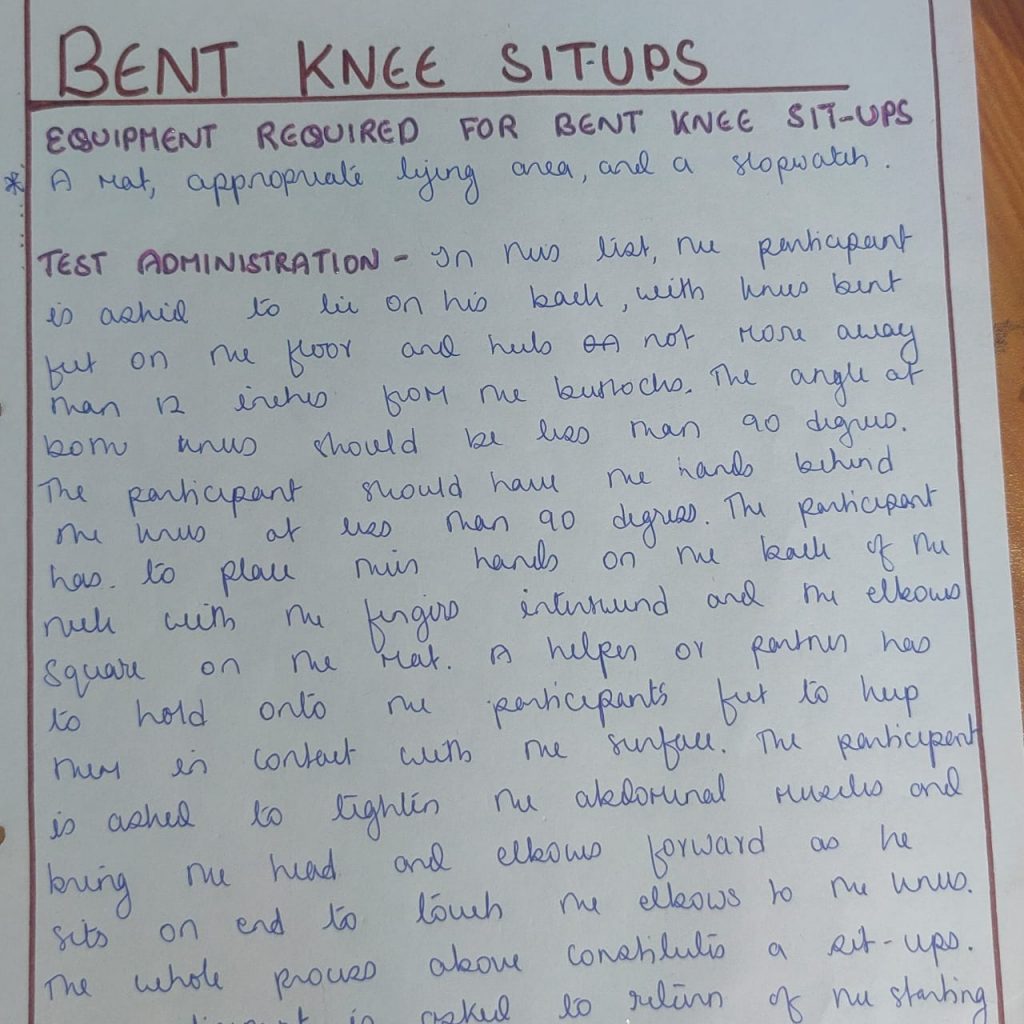 BENT KNEE SIT-UPS
EQUIPMENT REQUIRED FOR BENT KNEE SIT-UPS
* A mat, appropriate lying area, and a stopwatch.
TEST ADMINISTRATION - In this list, the participant
is asked to lie on his back, with knees bent
feet on the floor and heels not more away
than 12 inches from the buttocks. The angle at
both knees should be less than 90 degrees.
The participant should have the hands behind
the knees at less than 90 degress. The participant
has. to place their hands on the back of the
neck with the fingers intertwined and the elbows
square on the mat. A helper or partner has
to hold onto the participants feet to keep
them in contact with the surface. The participant
is asked to tighten the abdominal muscles and
bring the head and elbows forward as he
sits on end to touch the elbows to the knees.
The whole process above constitutes a sit-ups.
is asked to return of the starting